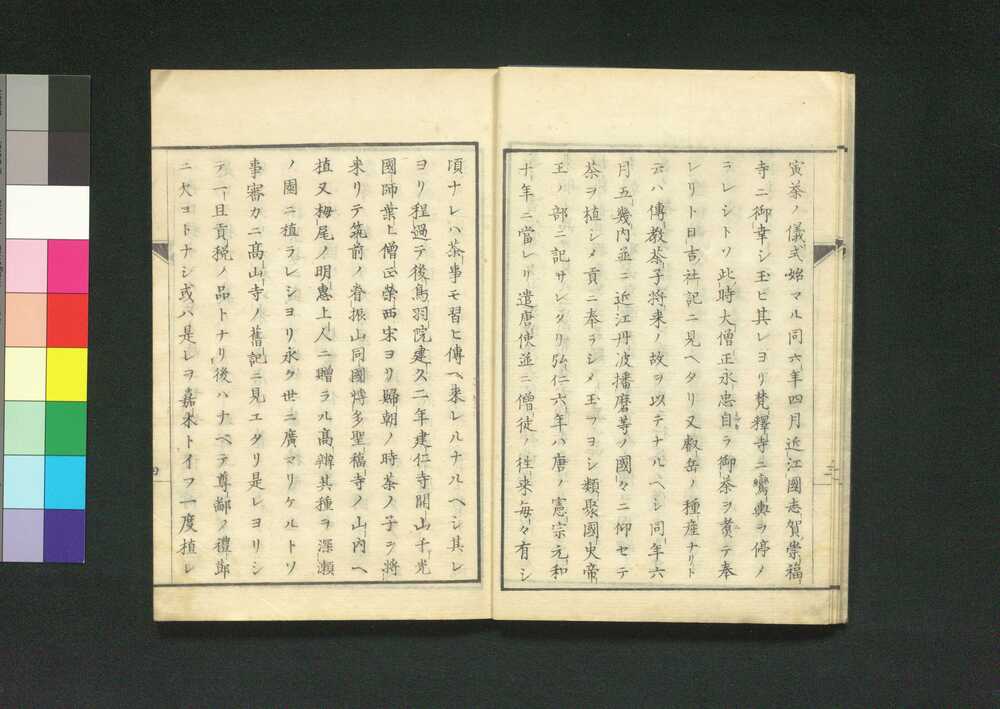 寅茶ノ儀式始マル同六年四月近江國志賀崇福
寺ニ御幸シ玉ヒ其レヨリ梵釋寺ニ鸞輿ヲ停メ
ラレシトソ此時大僧正永忠自ラ御茶ヲ煑テ奉
レリト日吉社記ニ見ヘタリ又叡岳ノ種産ナリト
云ハ傳教茶子将来ノ故ヲ以テナルヘシ同年六
月五幾内並ニ近江丹波播磨等ノ國々ニ仰セテ
茶ヲ植シメ貢ニ奉ラシメ玉フヨシ類聚國史帝
王ノ部ニ記サレタリ弘仁六年ハ唐ノ憲宗元和
十年ニ當レリ遣唐使並ニ僧徒ノ徃来毎々有シ
頃ナレハ茶事モ習ヒ傳ヘ来レルナルヘシ其レ
ヨリ程過テ後鳥羽院建久二年建仁寺開山千光
國師葉上僧正榮西宋ヨリ歸朝ノ時茶ノ子ヲ将
来リテ筑前ノ脊振山同國博多聖福寺ノ山内ヘ
植又梅尾ノ明惠上人ニ贈ラル高辨其種ヲ深瀬
ノ園ニ植ラレシヨリ永ク世ニ廣マリケルトソ
事審カニ髙山寺ノ舊記ニ見エタリ是レヨリシ
テ一旦貢税ノ品トナリ後ハナヘテ尊鄙ノ禮節
ニ欠コトナシ或ハ是レヲ嘉木トイフ一度植レ
四